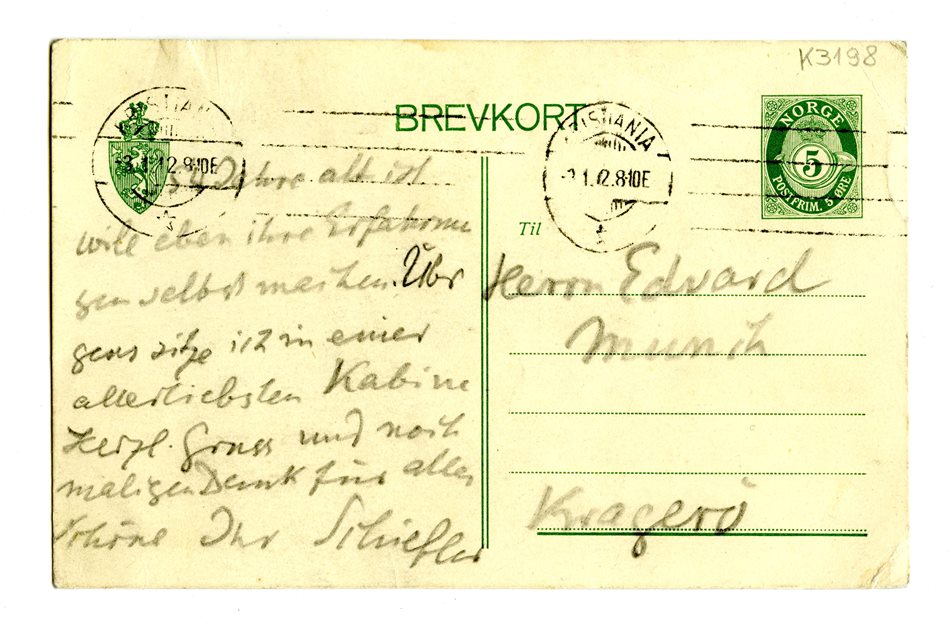 K3198
BREVKORT
KRISTIANIA
KRISTIANIA
NORGE
5
POSTFRIM. 5 ØRE
54 Jahre alt ist
will eben ihre Erfahrun
gen selbst machen. Übr
gens sitze ich in einer
allerliebsten Kabine
Herzl. Gruss und noch
maligen Dank für alles
Schöne Ihr Schiefler
Til
Herrn Edvard
Munch
Kragerö